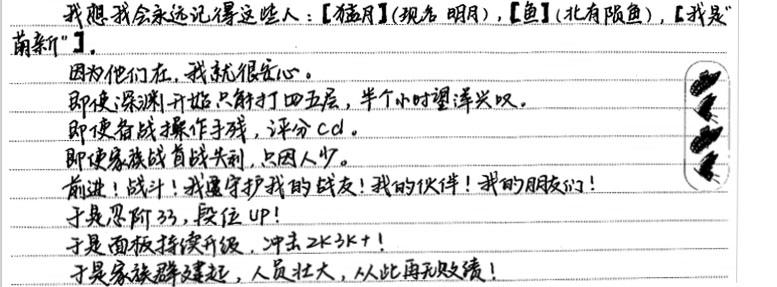 我想我会永远记得这些人：【猛月】(现名 明月)，【鱼】(北有陨鱼)，【我是"
萌新"】.
因为他们在，我就很安心。
即使深渊开始只能打四五层，半个小时望洋兴叹。
即使各战操作手残，评分cd。
即使家族战首战失利，只因人少。
前进！战斗！我守护我的战友！我的伙伴！我的朋友们！
于是忍阶33，段位UP！
于是面板持续升级，冲击2K3K+！
于是家族群建起，人员壮大，从此再无败绩！